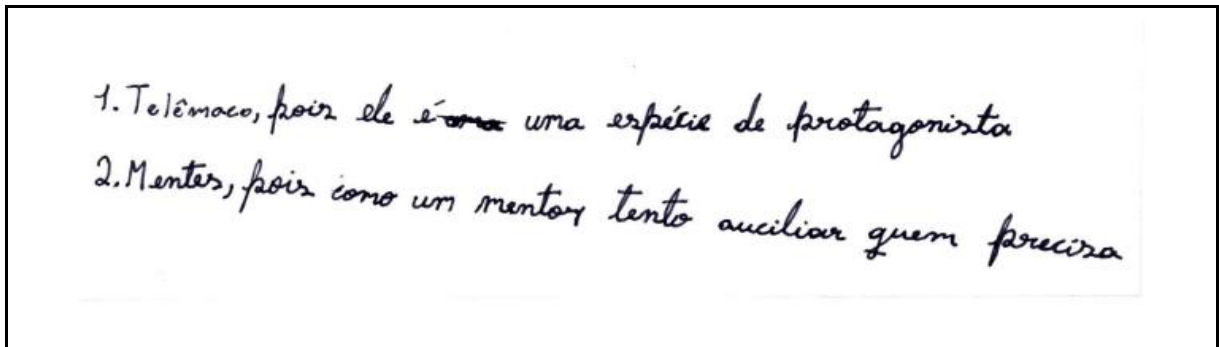 1. Telêmaco, pois ele é uma espécie de protagonista
2. Mentes, pois como um mentor tento auciliar quem precisa